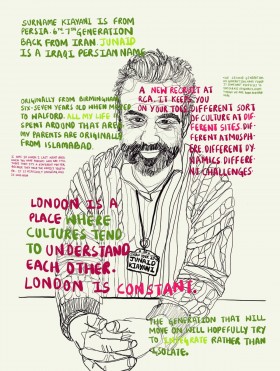 SURNAME KIAYANI IS FROM
PERSIA. 6TH 7TH GENERATION
BACK FROM IRAN. JUNAID
IS A IRAQI, PERSIAN NAME
ORIGINALLY FROM BIRMINGHAM,
SIX-SEVEN YEARS OLD WHEN MOVED
TO WALFORD. ALL MY LIFE
SPENT AROUND THAT AREA.
MY PARENTS ARE ORIGINALLY
FROM ISLAMABAD.
A NEW RECRUIT AT
RCA. IT KEEPS YOU
ON YOUR TOES. DIFFERENT SORT
OF CULTURE AT DIF-
FERENT SITES. DIF-
FERENT ATMOSPH-
ERE DIFFERENT DY-
NAMICS DIFFERE-
NT CHALLENGES
LONDON IS A
PLACE WHERE
CULTURES TEND
TO UNDERSTAND
EACH OTHER.
LONDON IS CONSTANT.
JUNAID
KIAYANI
THE GENERATION THAT WILL
MOVE ON WILL HOPEFULLY TRY
TO INTEGRATE RATHER THAN
ISOLATE.